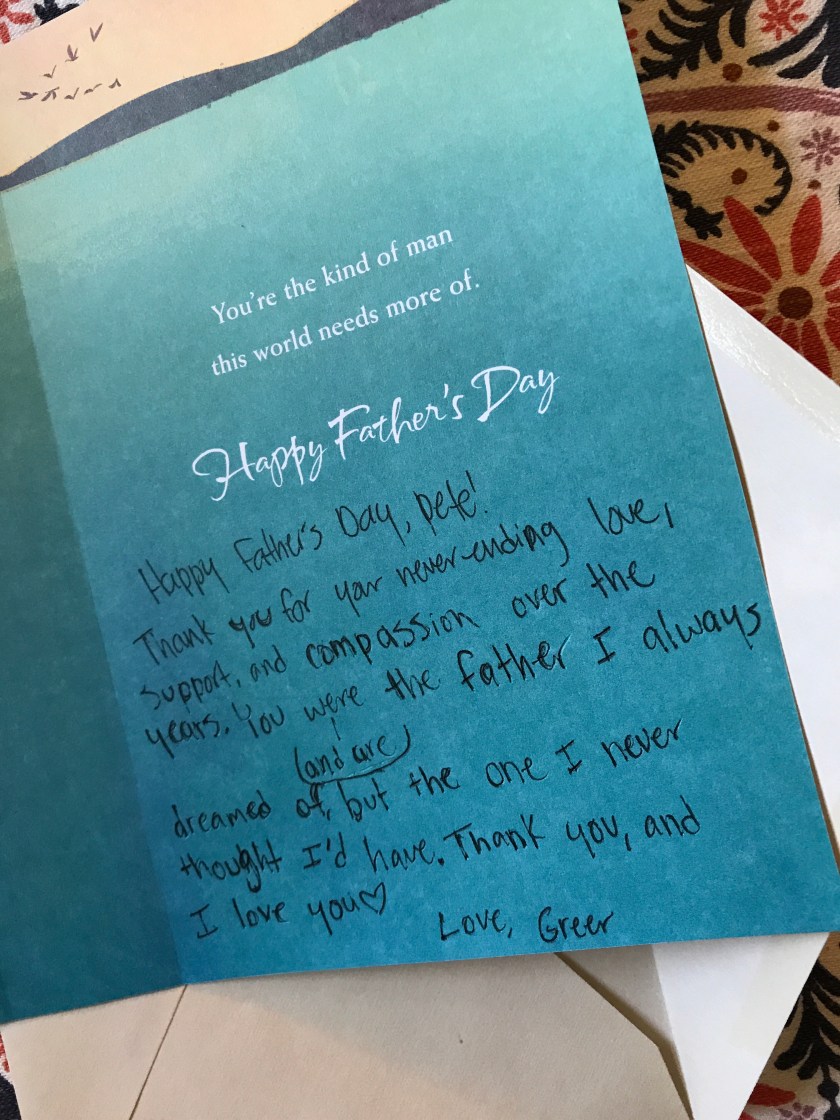 You're the kind of man
this world needs more of.
Happy Father's Day
Happy Father's Day, Pete!
Thank you for your never-ending love,
support, and compassion over the
years. You were the father I always
(and are)
dreamed of, but the one I never
thought I'd have. Thank you, and
I love you♡
Love, Greer